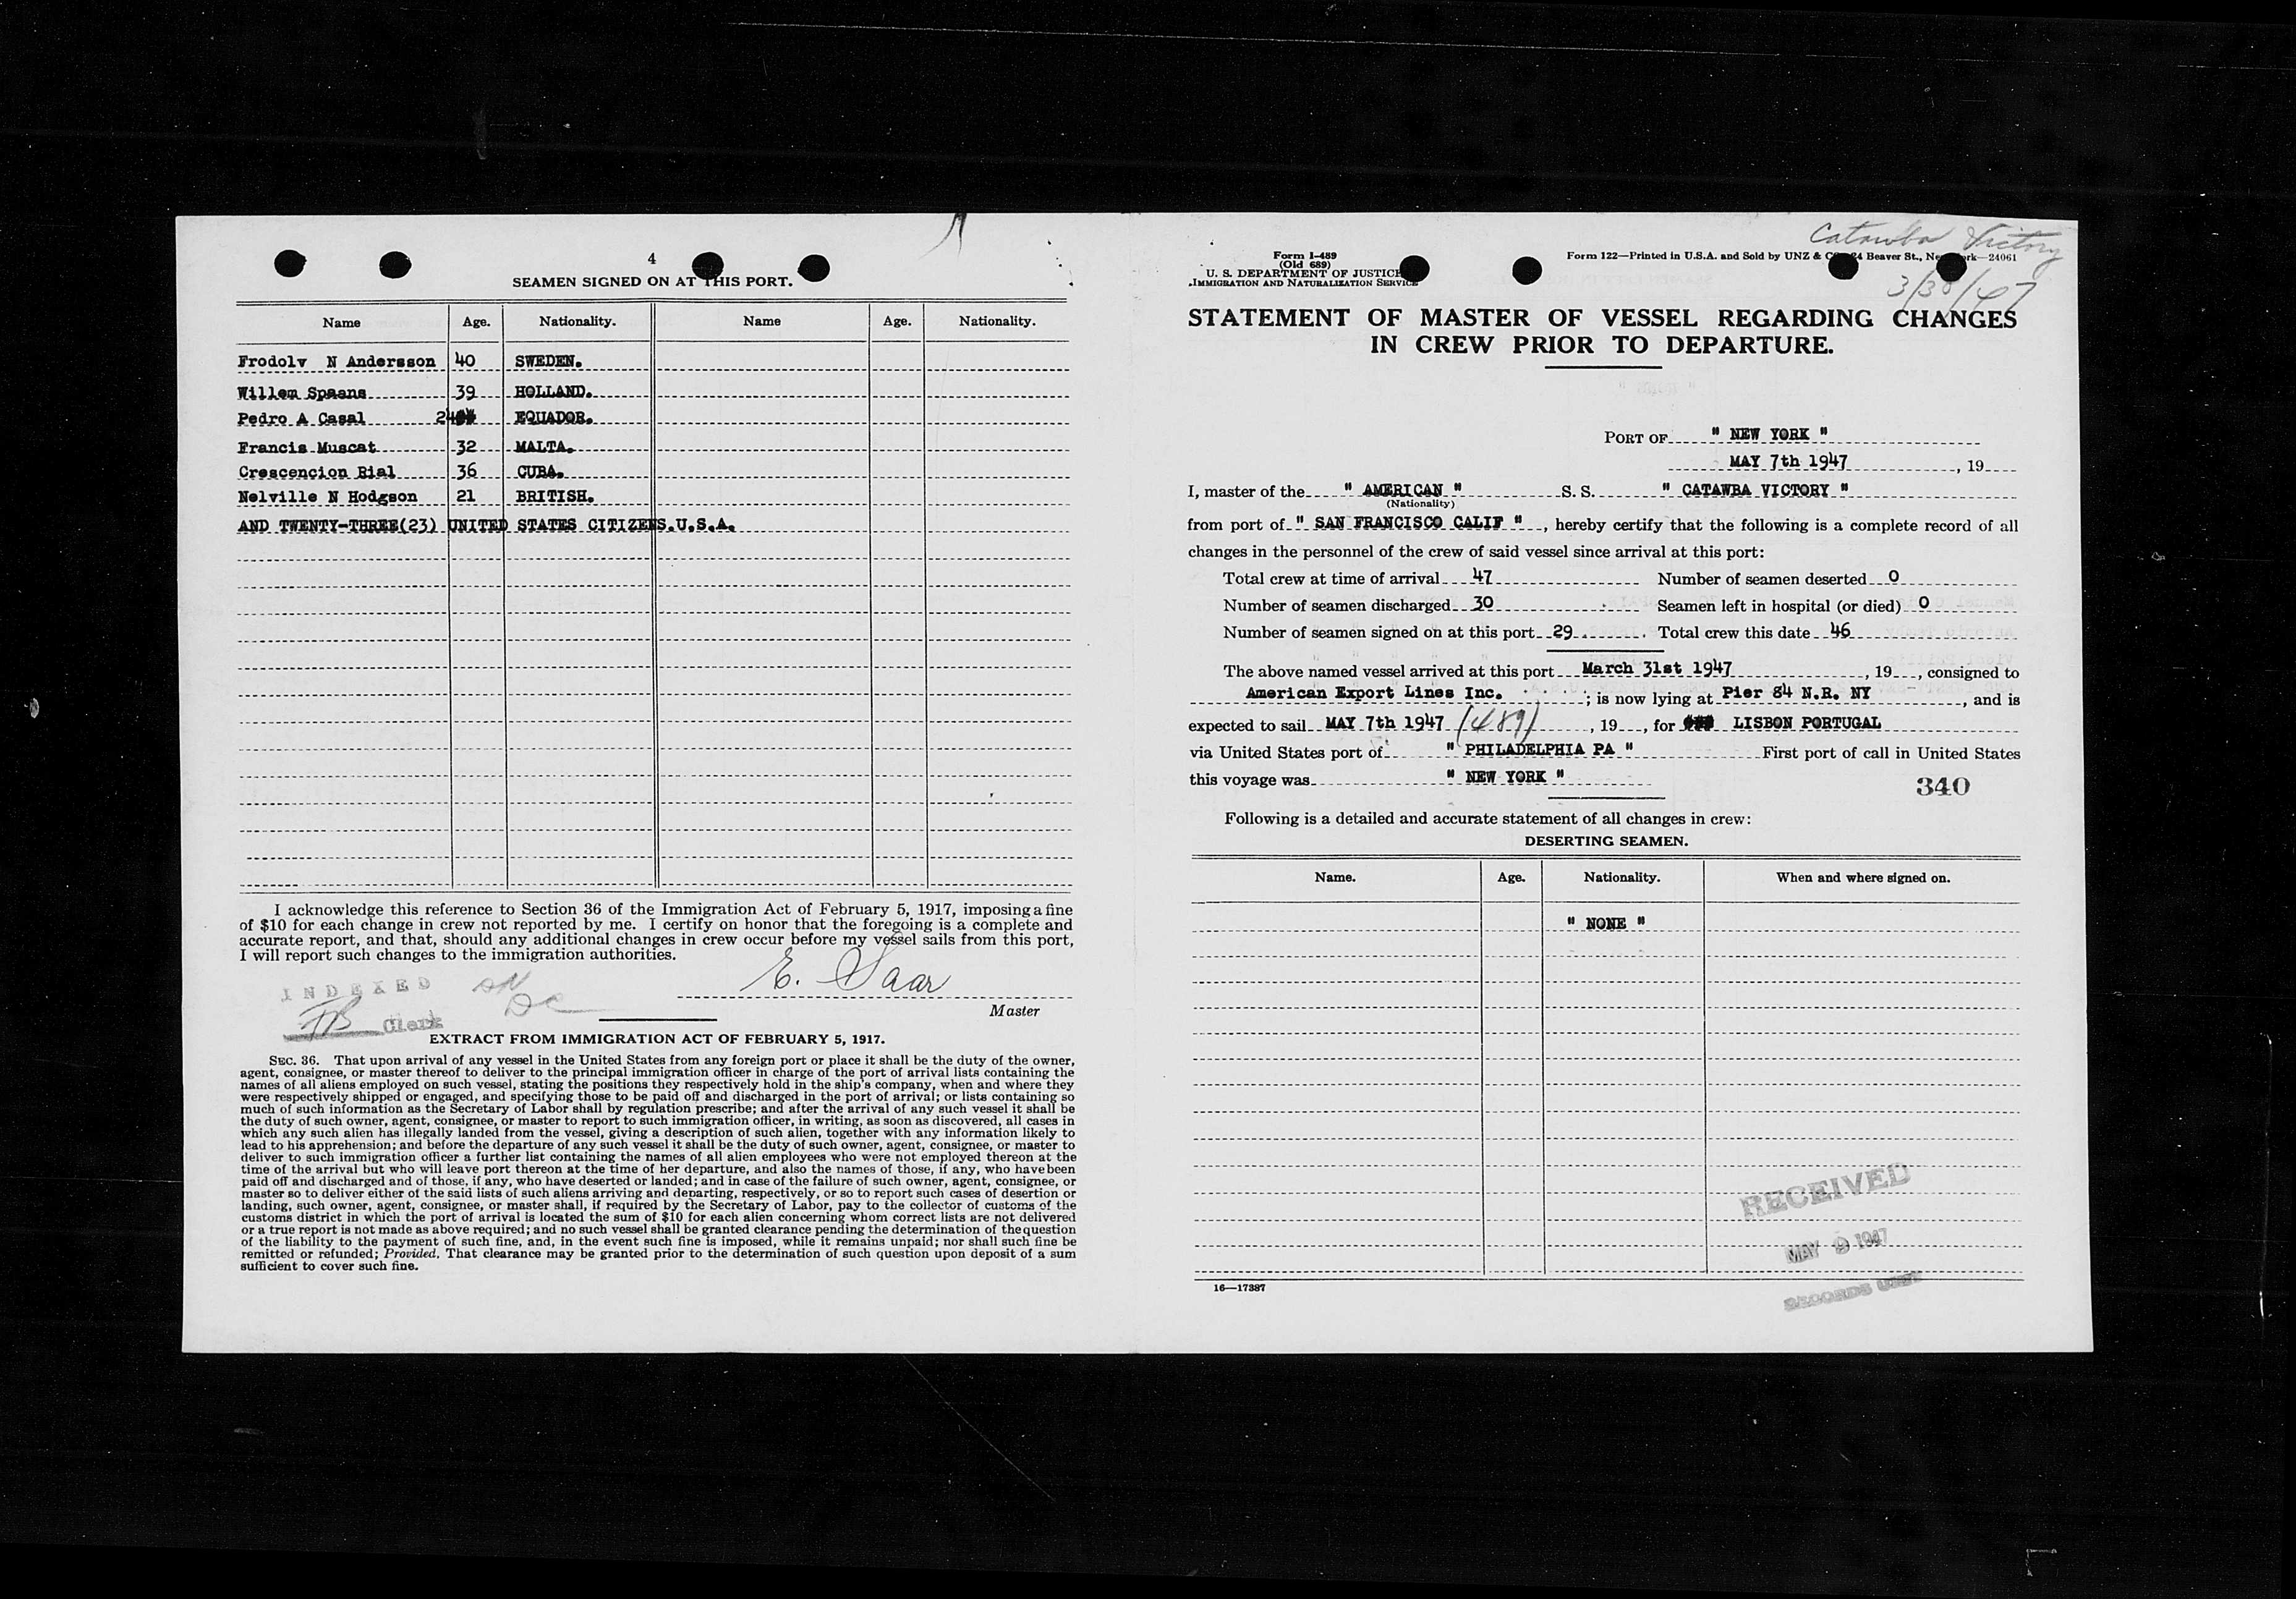 4
SEAMEN SIGNED ON AT THIS PORT.
Name Age. Nationality. Name Age. Nationality.
Frodolv N Andersson 40 SWEDEN.
Willem Spaans 39 HOLLAND.
Pedro A Casal 24 EQUADOR.
Francis Muscat 32 MALTA.
Crescencion Rial 36 CUBA.
Nelville N Hodgson 21 BRITISH.
AND TWENTY-THREE(23) UNITED STATES CITIZENS.U.S.A.
I acknowledge this reference to Section 36 of the Immigration Act of February 5, 1917, imposing a fine
of $10 for each change in crew not reported by me. I certify on honor that the foregoing is a complete and
accurate report, and that, should any additional changes in crew occur before my vessel sails from this port,
I will report such changes to the immigration authorities.
E. Saar
Master
INDEXED
Clerk
EXTRACT FROM IMMIGRATION ACT OF FEBRUARY 5, 1917.
SEC. 36. That upon arrival of any vessel in the United States from any foreign port or place it shall be the duty of the owner,
agent, consignee, or master thereof to deliver to the principal immigration officer in charge of the port of arrival lists containing the
names of all aliens employed on such vessel, stating the positions they respectively hold in the ship's company, when and where they
were respectively shipped or engaged, and specifying those to be paid off and discharged in the port of arrival; or lists containing so
much of such information as the Secretary of Labor shall by regulation prescribe; and after the arrival of any such vessel it shall be
the duty of such owner, agent, consignee, or master to report to such immigration officer, in writing, as soon as discovered, all cases in
which any such alien has illegally landed from the vessel, giving a description of such alien, together with any information likely to
lead to his apprehension; and before the departure of any such vessel it shall be the duty of such owner, agent, consignee, or master to
deliver to such immigration officer a further list containing the names of all alien employees who were not employed thereon at the
time of the arrival but who will leave port thereon at the time of her departure, and also the names of those, if any, who have been
paid off and discharged and of those, if any, who have deserted or landed; and in case of the failure of such owner, agent, consignee, or
master so to deliver either of the said lists of such aliens arriving and departing, respectively, or so to report such cases of desertion or
landing, such owner, agent, consignee, or master shall, if required by the Secretary of Labor, pay to the collector of customs of the
customs district in which the port of arrival is located the sum of $10 for each alien concerning whom correct lists are not delivered
or a true report is not made as above required; and no such vessel shall be granted clearance pending the determination of the question
of the liability to the payment of such fine, and, in the event such fine is imposed, while it remains unpaid; nor shall such fine be
remitted or refunded; Provided, That clearance may be granted prior to the determination of such question upon deposit of a sum
sufficient to cover such fine.
Catawba Victory
3/30/47
Form I-489
(Old 689)
U. S. DEPARTMENT OF JUSTICE
IMMIGRATION AND NATURALIZATION SERVICE
Form 122—Printed in U.S.A. and Sold by UNZ & Co., 24 Beaver St., New York—24061
STATEMENT OF MASTER OF VESSEL REGARDING CHANGES
IN CREW PRIOR TO DEPARTURE.
PORT OF " NEW YORK "
MAY 7th 1947, 19
I, master of the " AMERICAN " S. S. " CATAWBA VICTORY "
(Nationality)
from port of " SAN FRANCISCO CALIF ", hereby certify that the following is a complete record of all
changes in the personnel of the crew of said vessel since arrival at this port:
Total crew at time of arrival 47 Number of seamen deserted 0
Number of seamen discharged 30 Seamen left in hospital (or died) 0
Number of seamen signed on at this port 29 Total crew this date 46
The above named vessel arrived at this port March 31st 1947, 19, consigned to
American Export Lines Inc. ; is now lying at Pier 84 N.R. NY, and is
expected to sail MAY 7th 1947 (489), 19, for LISBON PORTUGAL
via United States port of " PHILADELPHIA PA " First port of call in United States
this voyage was " NEW YORK "
340
Following is a detailed and accurate statement of all changes in crew:
DESERTING SEAMEN.
Name. Age. Nationality. When and where signed on.
" NONE "
RECEIVED
MAY 9 1947
RECORDS UNIT
16—17387